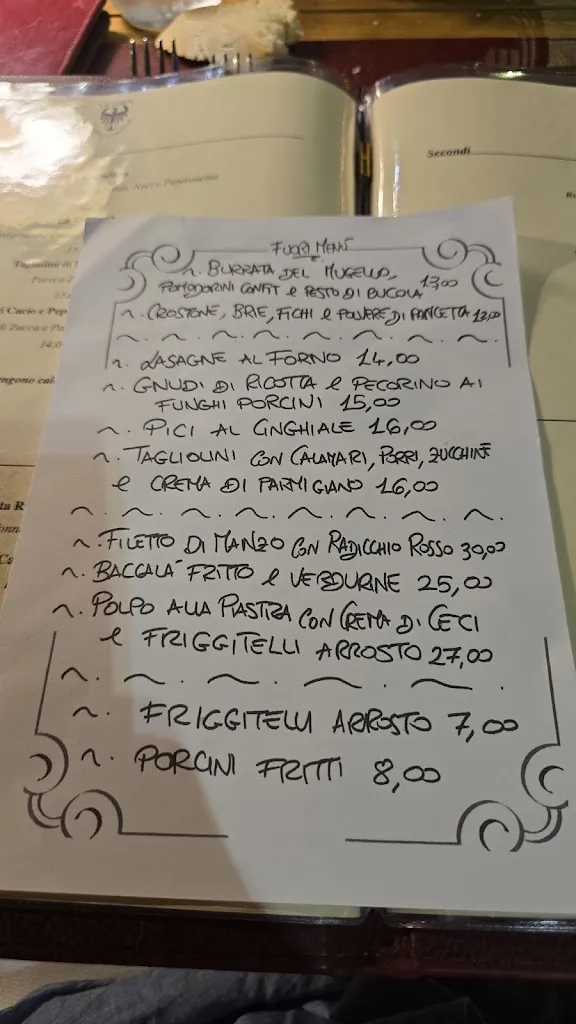 Secondi
FUORI MENÙ
~. BURRATA DEL MUGELLO,
POMODORINI CONFIT e PESTO DI RUCOLA 13,00
~. CROSTONE, BRIE, FICHI e POLVERE DI PANCETTA 12,00
~. LASAGNE AL FORNO 14,00
~. GNUDI DI RICOTTA e PECORINO AI
FUNGHI PORCINI 15,00
~. PICI AL CINGHIALE 16,00
~. TAGLIOLINI CON CALAMARI, PORRI, ZUCCHINE
e CREMA DI PARMIGIANO 16,00
~. FILETTO DI MANZO CON RADICCHIO ROSSO 30,00
~. BACCALÀ FRITTO e VERDURINE 25,00
~. POLPO ALLA PIASTRA CON CREMA DI CECI
e FRIGGITELLI ARROSTO 27,00
~. FRIGGITELLI ARROSTO 7,00
~. PORCINI FRITTI 8,00